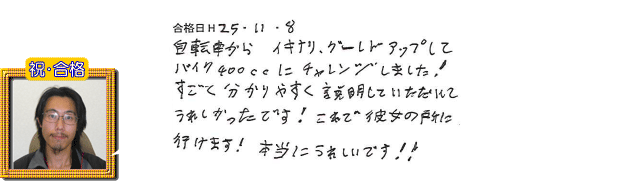 合格日H25・11・8
自転車から イキナリ、グールドアップして
バイク400ccにチャレンジしました!
すごく分かりやすく説明していただいて
うれしかったです! これで彼女の所に
行けます! 本当にうれしいです!!
祝・合格